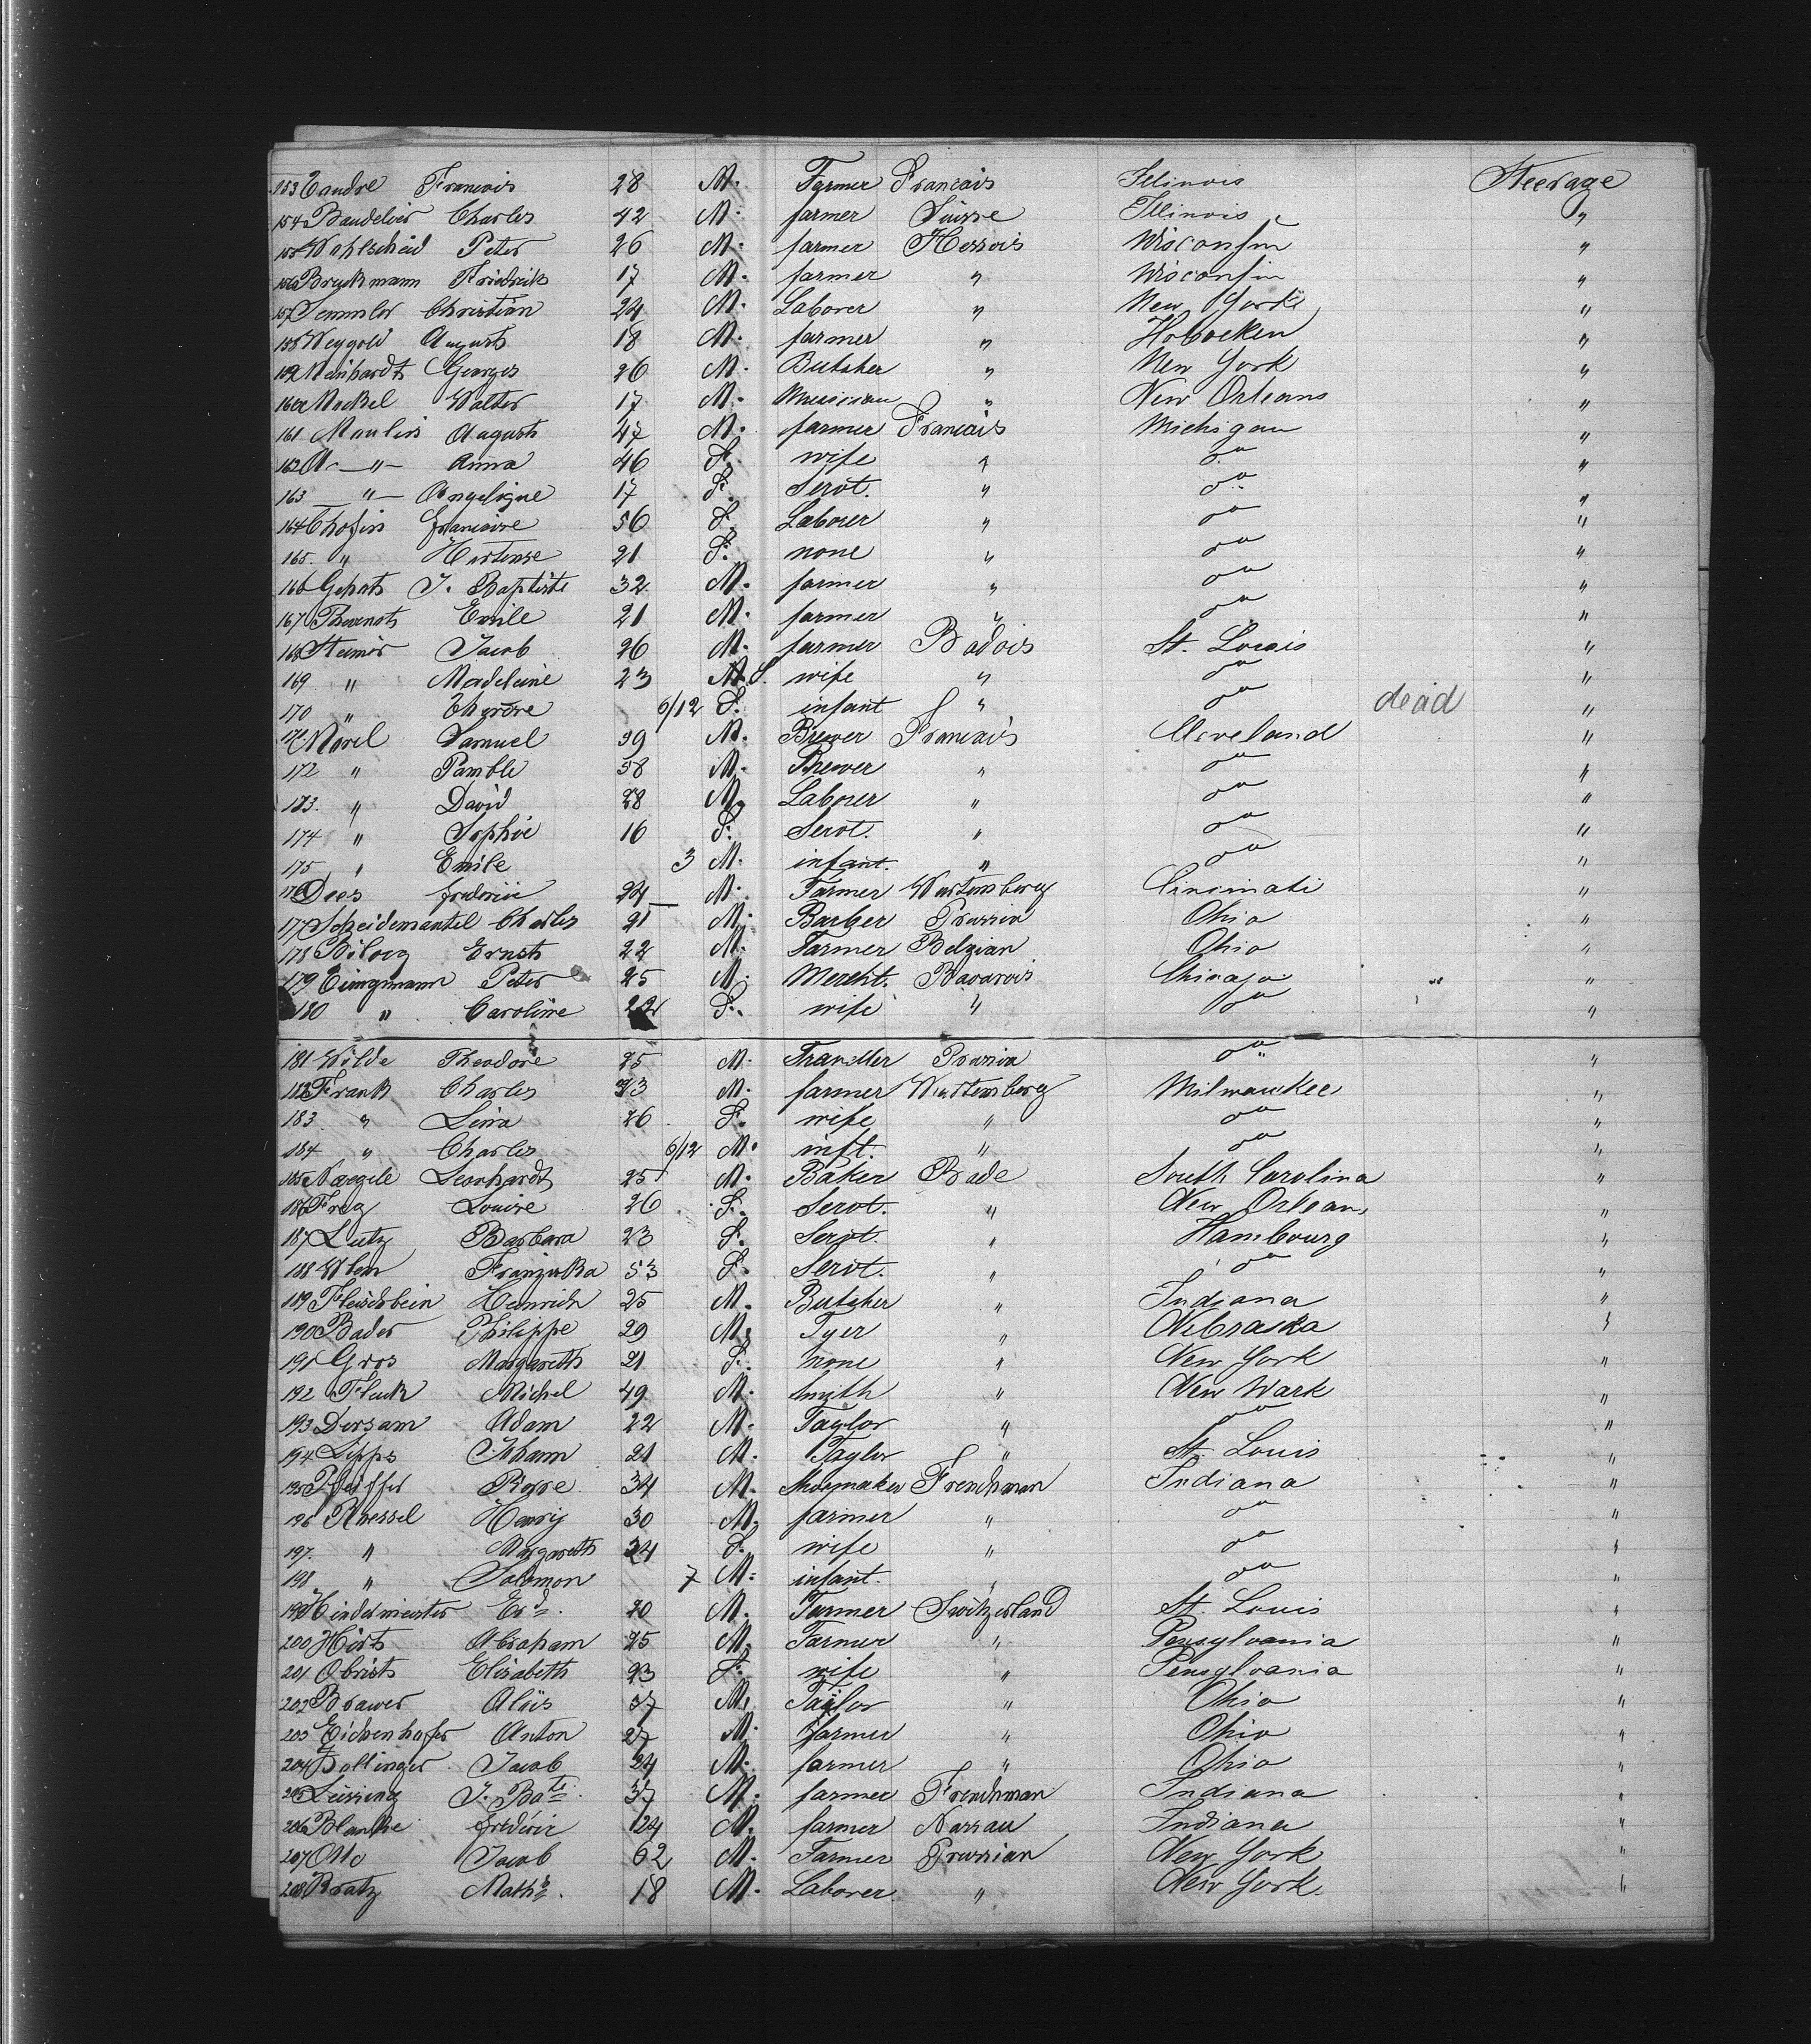 153 Candre Francois 28 M. Farmer Francais Illinois Steerage
154 Baudelier Charles 42 M. farmer Suisse Illinois "
155 Wahlscheid Peter 26 M. farmer Hessois Wisconsin "
156 Bruckmann Friedrick 17 M. farmer " Wisconsin "
157 Semmler Christian 24 M. Laborer " New York "
158 Weygold August 18 M. farmer " Hobocken "
159 Meinhardt Georges 26 M. Butcher " New York "
160 Mockel Walter 17 M. Musician " New Orleans "
161 Moulin August 47 M. farmer Francais Michigan "
162 " Anna 46 F. wife " do "
163 " Angelique 17 F. Servt. " do "
164 Chofin 56 F. Laborer " do "
165 " Hortense 21 F. none " do "
166 J. Baptiste 32 M. farmer " do "
167 Emile 21 M. farmer " do "
168 Steimer Jacob 26 M. farmer Badois St. Louis "
169 " Madeleine 23 M. F. wife " do "
170 " 6/12 F. infant " do dead "
171 Morel Samuel 39 M. Brewer Francais Cleveland "
172 " 38 M. Brewer " do "
173 " David 28 M. Laborer " do "
174 " Sophie 16 F. Servt. " do "
175 " Emile 3 M. infant. " do "
176 Dees frederic 24 M. Farmer Wurtemberg Cincinati "
177 Scheidemantel Charles 21 M. Barber Prussia Ohio "
178 Ernst 22 M. Farmer Belgian Ohio "
179 Peter 25 M. Mercht. Bavarois Chicago "
180 " Caroline 22 F. wife " do "
181 Wilde Theodore 25 M. Prussia do "
182 Frank Charles 23 M. farmer Wurtemberg Milwaukee "
183 " Lina 26 F. wife " do "
184 " Charles 6/12 M. inft. " do "
185 Naegele Leonhardt 25 M. Baker Bade South Carolina "
186 Frey Louise 26 F. Servt. " New Orleans "
187 Lutz Barbara 23 F. Servt. " Hambourg "
188 Franziska 53 F. Servt. " do "
189 Fleischbein Heinrich 25 M. Butcher " Indiana "
190 Bader Philippe 29 M. Tyer " Nebraska "
191 Gros Margareth 21 F. none " New York "
192 Fluck Michel 49 M. Smith " New Wark "
193 Dersam Adam 22 M. Taylor " do "
194 Lipps Johann 21 M. Taylor " St. Louis "
195 Pfeiffer Pierre 34 M. Shoemaker Frenchman Indiana "
196 Ruessel Henry 30 M. farmer " do "
197 " Margareth 24 F. wife " do "
198 " Salomon 7 M. infant. " do "
199 Hindermeister Ed. 20 M. Farmer Switzerland St. Louis "
200 Hirt Abraham 25 M. Farmer " Pensylvania "
201 Obrist Elisabeth 23 F. wife " Pensylvania "
202 Brawer Alois 37 M. Taylor " Ohio "
203 Eichenhofer Anton 27 M. farmer " Ohio "
204 Bollinger Jacob 24 M. farmer " Ohio "
205 J. Bate. 37 M. farmer Frenchman Indiana "
206 Blanke frederic 24 M. farmer Nassau Indiana "
207 Otto Jacob 62 M. Farmer Prussian New York "
208 Bratz Maths. 18 M. Laborer " New York "